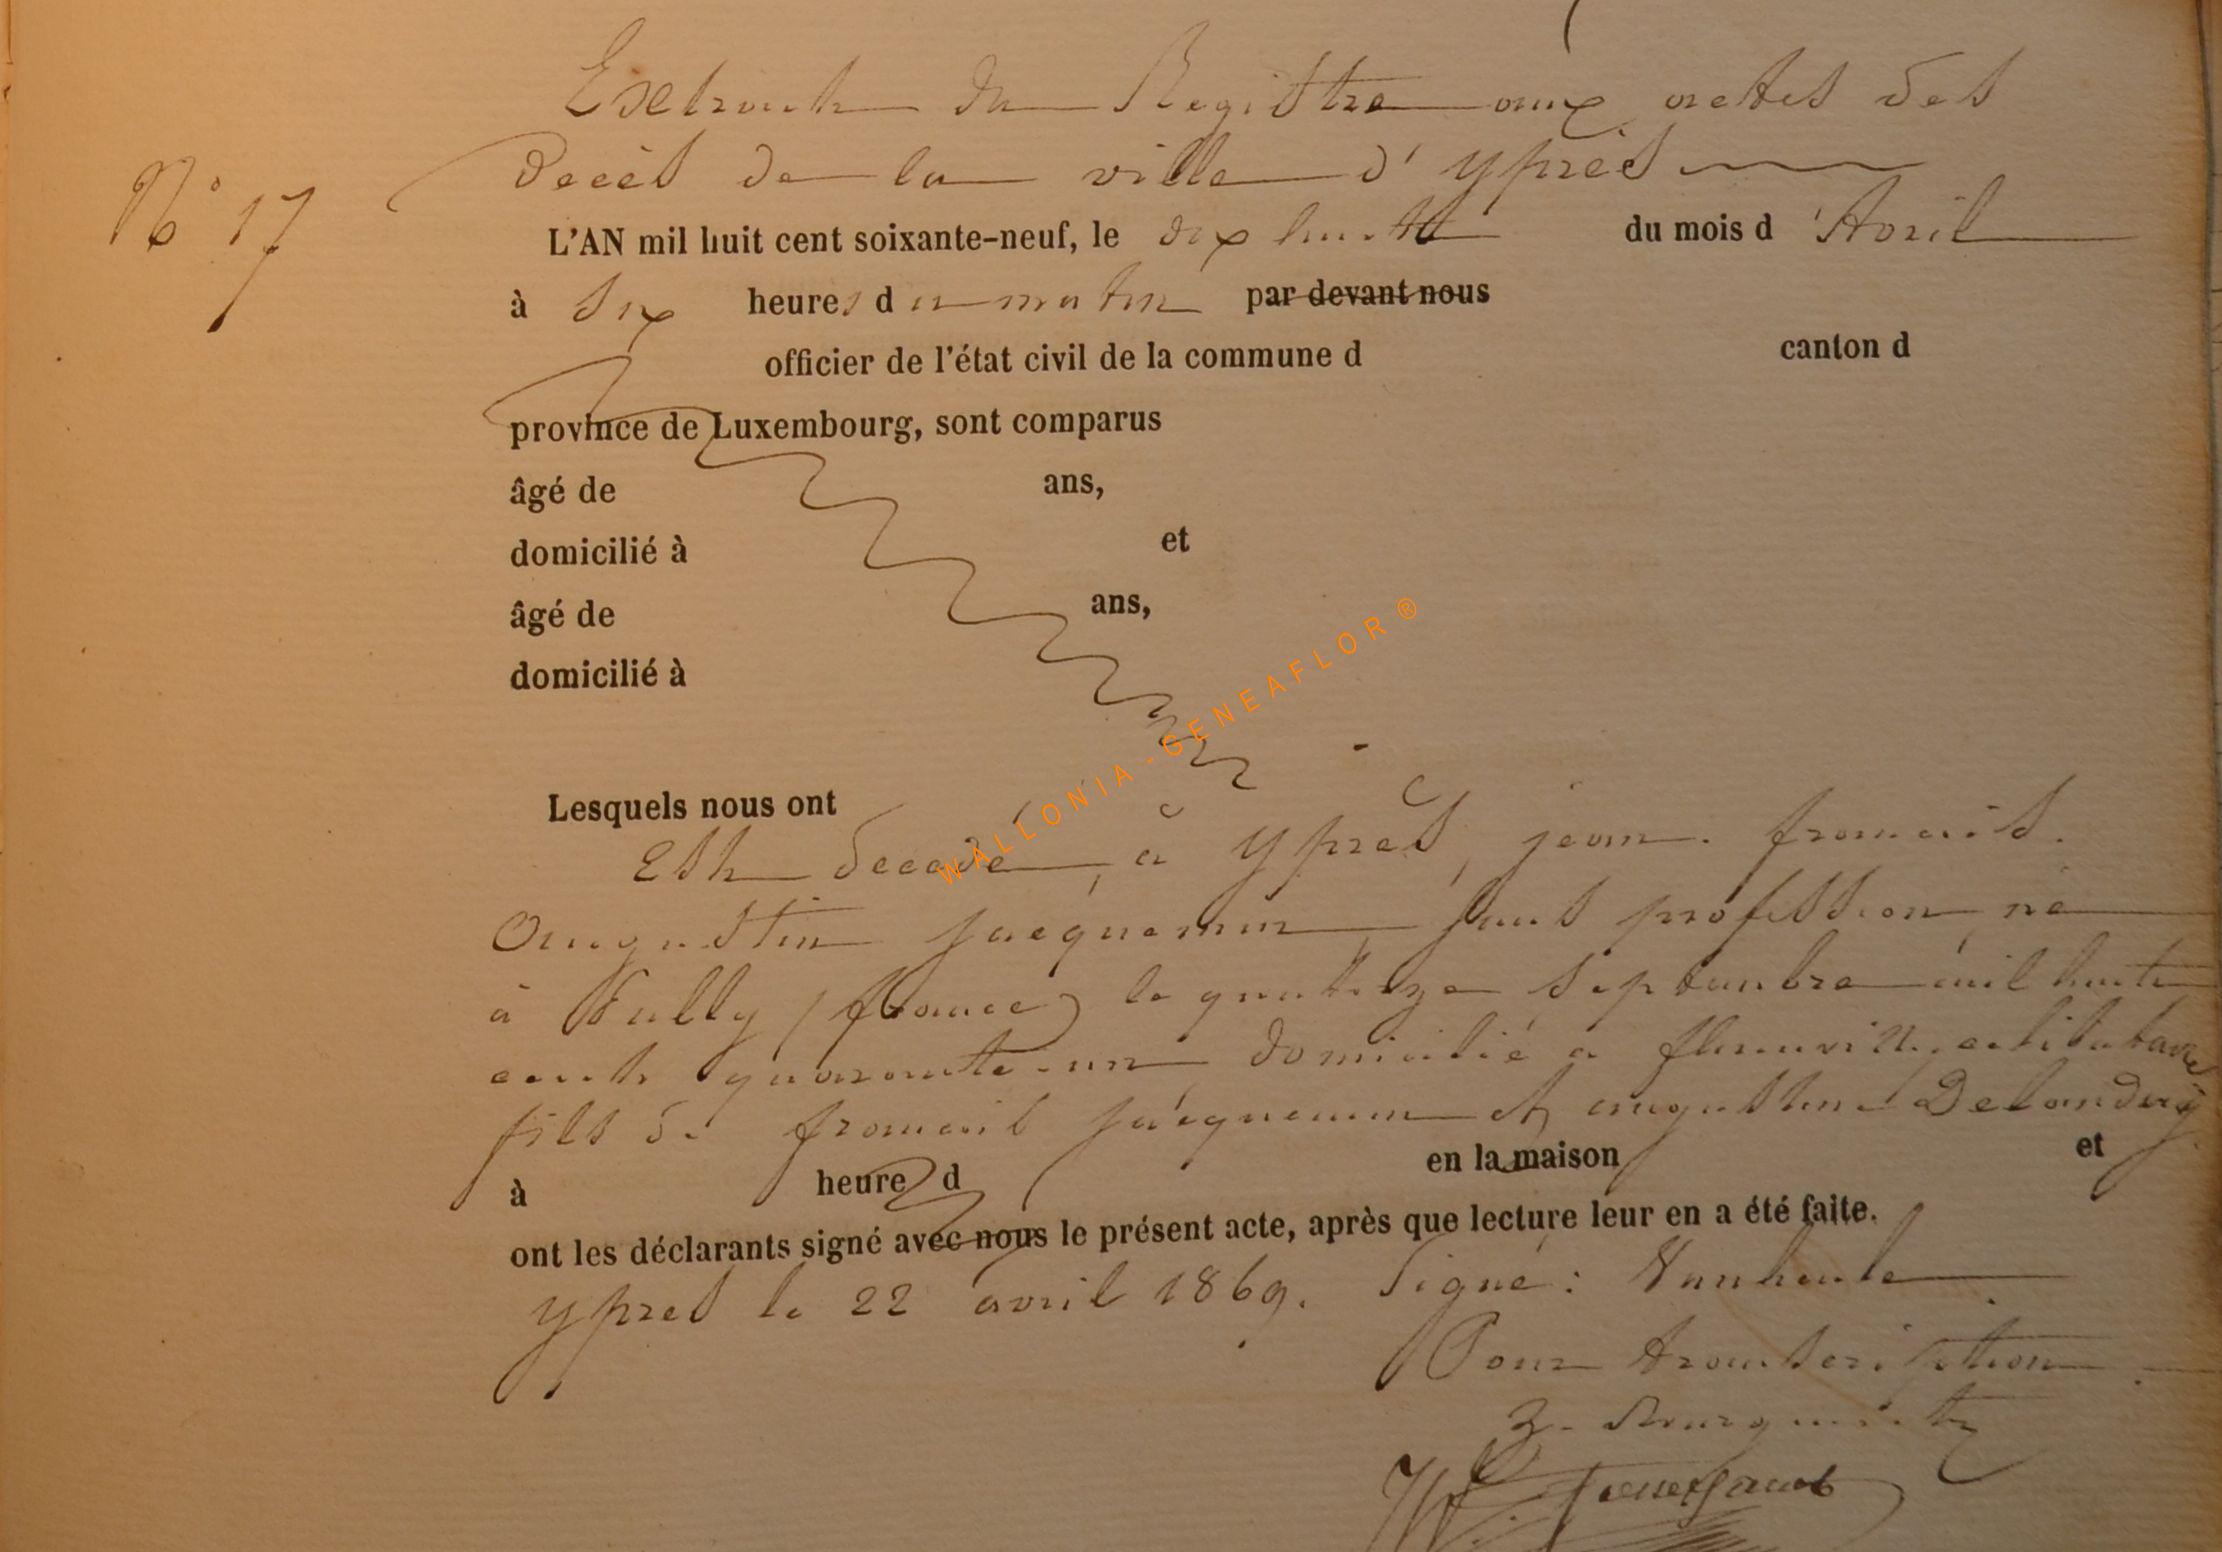 Extrait du Registre aux actes des
N° 17
décès de la ville d'ypres
L'AN mil huit cent soixante-neuf, le dix huit du mois d'Avril
à six heures du matin par devant nous
officier de l'état civil de la commune d canton d
province de Luxembourg, sont comparus
âgé de ans,
domicilié à et
âgé de ans,
domicilié à
WALLONIA - GENEAFLOR ®
Lesquels nous ont
Est décédé à ypres, jean francois
Augustin jacquemin, sans profession, né
à (france) le quatorze septembre mil huit
cent quarante-un domicilié a celibataire,
fils de francois jacquemin et augustine
à heure d en la maison et
ont les déclarants signé avec nous le présent acte, après que lecture leur en a été faite.
ypres le 22 avril 1869. Signé: Vanheule
Pour transcription